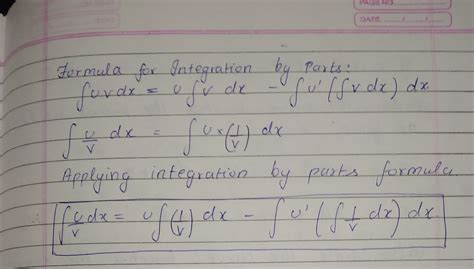 PAGE NO.
DATE / /
Formula for Integration by Parts:
∫uvdx = u∫v dx - ∫u'(∫v dx) dx.
∫u/v dx = ∫u×(1/v) dx
Applying integration by parts formula
∴ ∫u/v dx = u∫(1/v) dx - ∫u'(∫1/v dx) dx